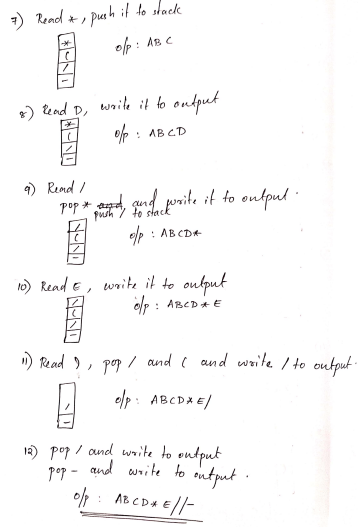 7) Read *, push it to stack
*
(
/
-
o/p : ABC
8) Read D, write it to output
*
(
/
-
o/p : ABCD
9) Read /
pop * and, and write it to output.
push / to stack
/
(
/
-
o/p : ABCD*
10) Read E, write it to output
/
(
/
-
o/p : ABCD*E
11) Read ), pop / and ( and write / to output.
/
-
o/p : ABCD*E/
12) pop / and write to output
pop - and write to output.
o/p : ABCD*E//-